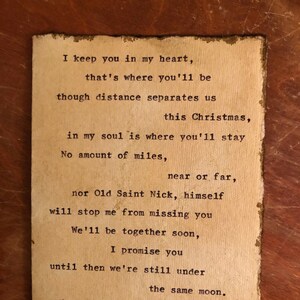 I keep you in my heart,
that's where you'll be
though distance separates us
this Christmas,
in my soul is where you'll stay
No amount of miles,
near or far,
nor Old Saint Nick, himself
will stop me from missing you
We'll be together soon,
I promise you
until then we're still under
the same moon.